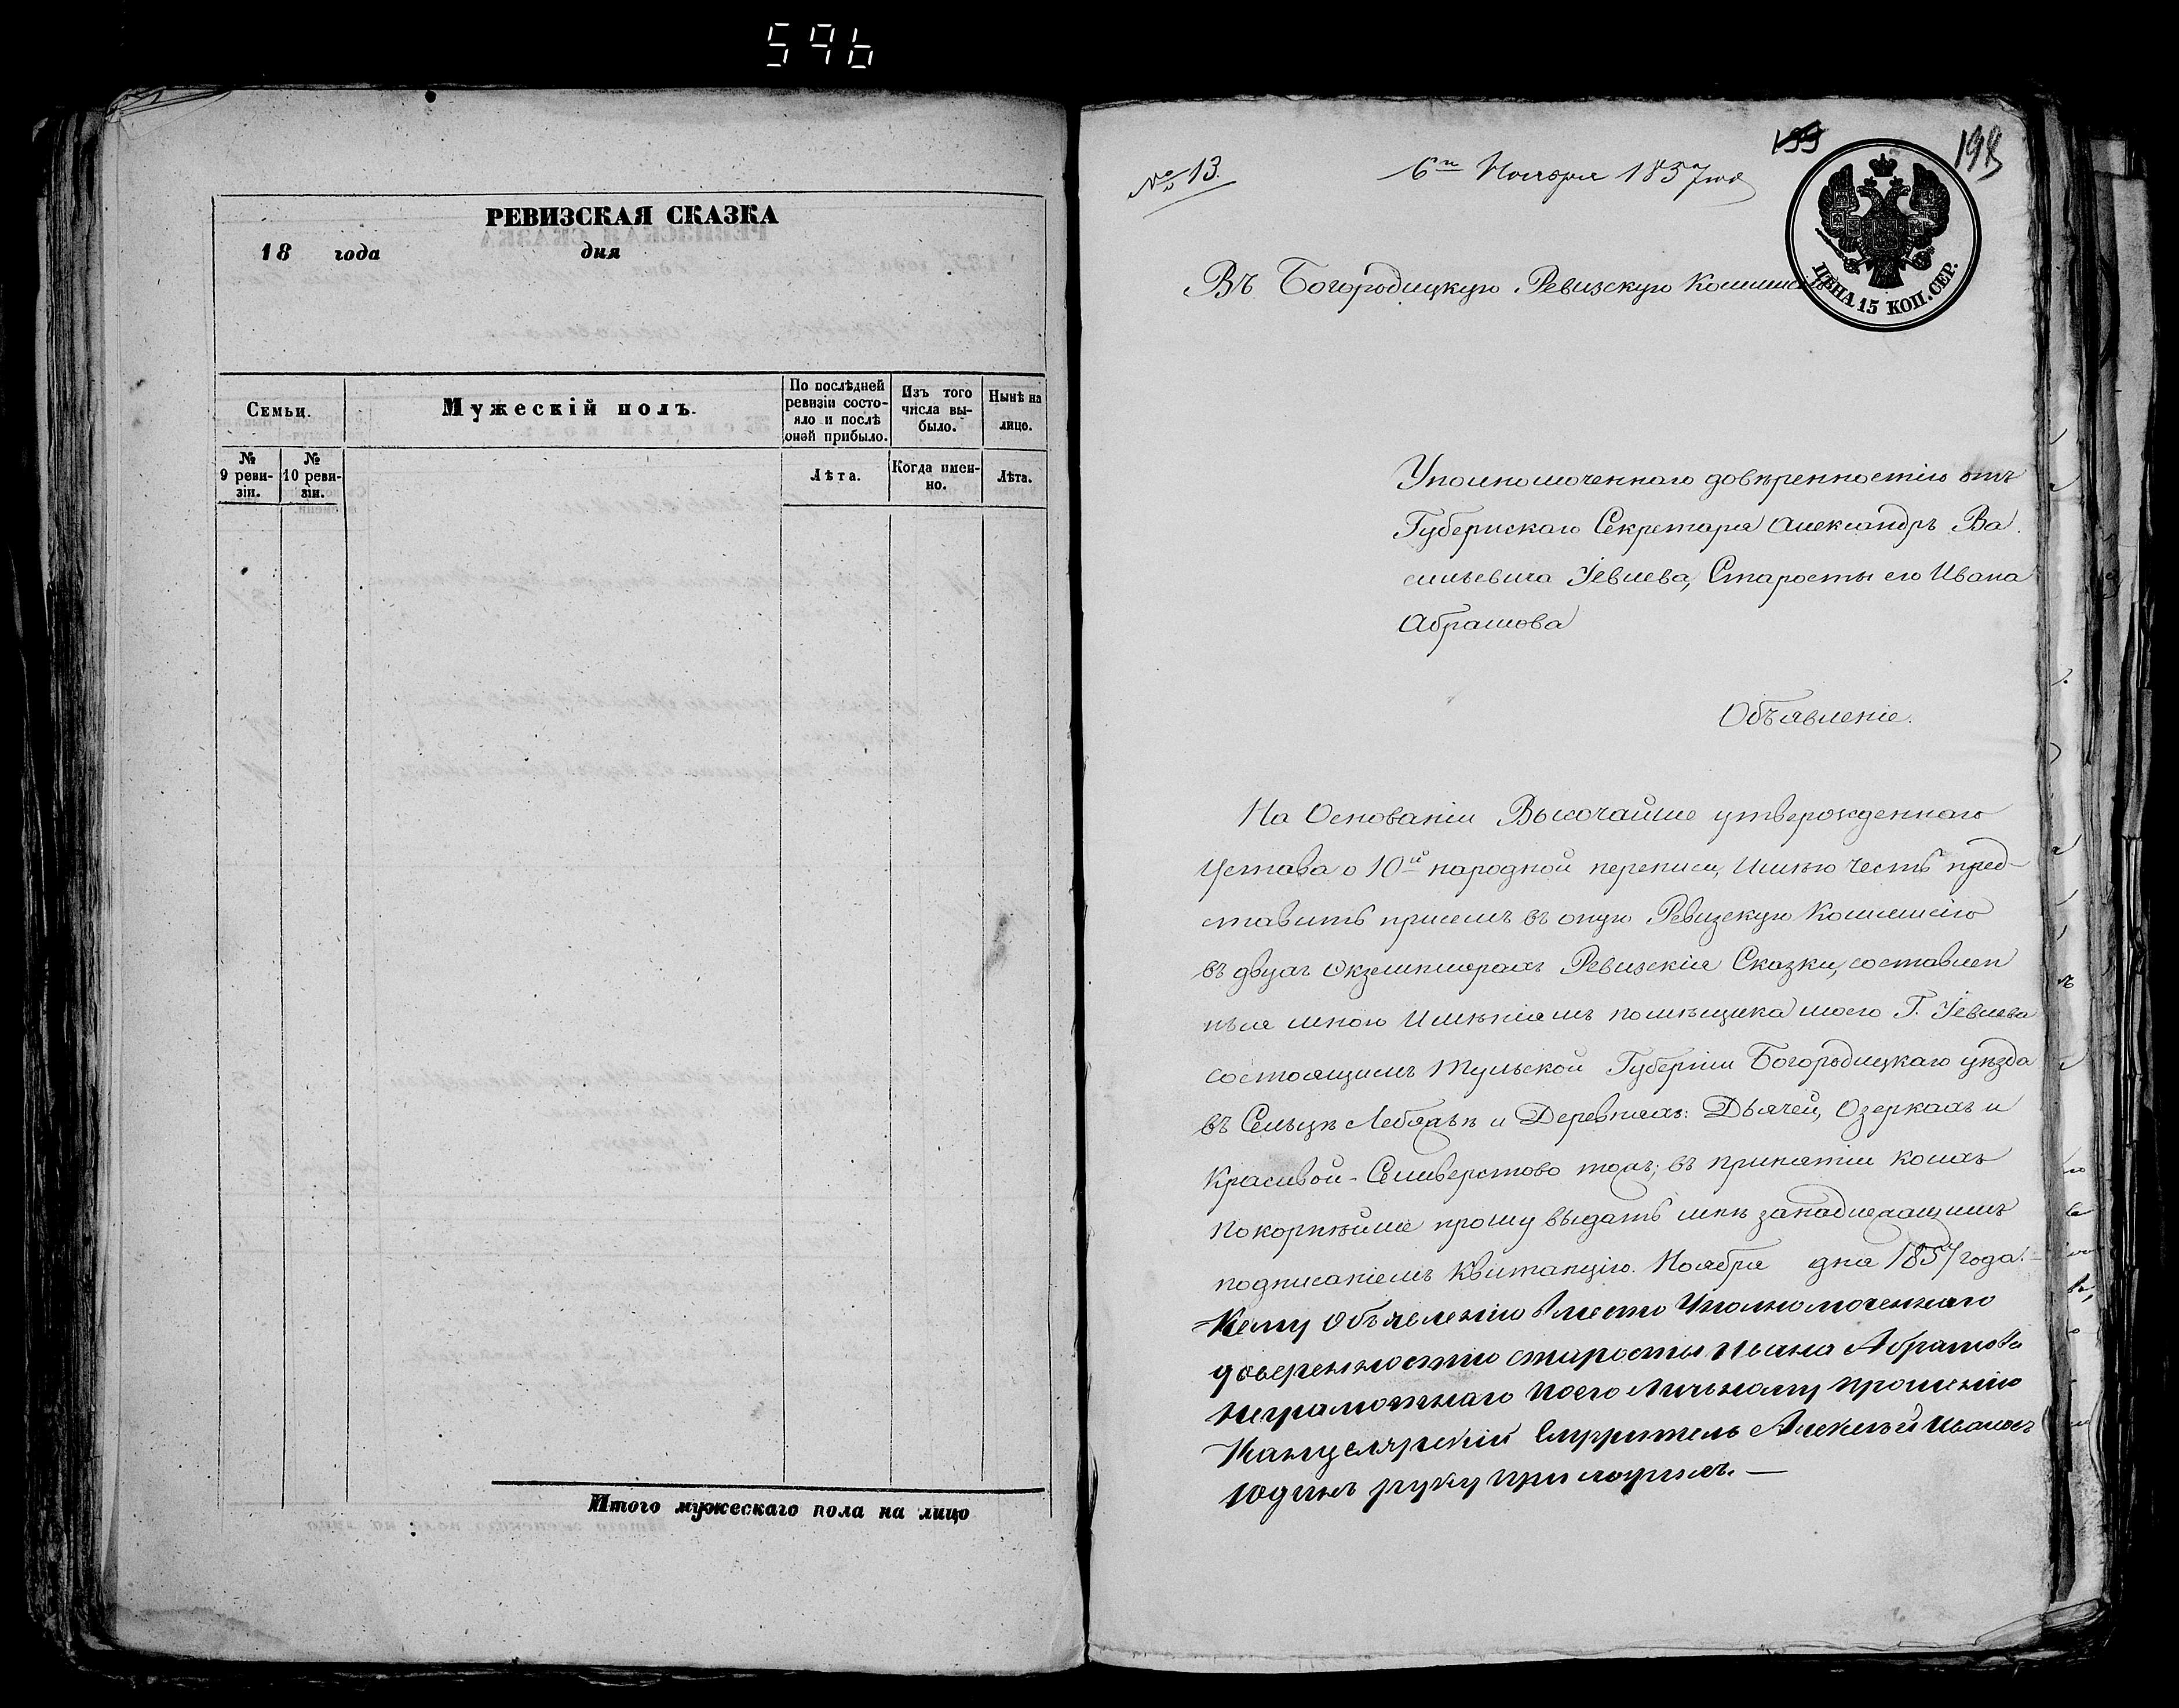 596
РЕВИЗСКАЯ СКАЗКА
18 года дня
Семьи.
Мужескій полъ.
По послѣдней ревизіи состо-
яло и послѣ
оной прибыло.
Изъ того
числа вы-
было.
Нынѣ на
лицо.
№
9 реви-
зіи.
№
10 реви-
зіи.
Лѣта.
Когда имен-
но.
Лѣта.
Итого мужескаго пола на лицо
№ 13.
6го Ноября 1857 года
199
198
ЦѢНА 15 КОП. СЕР.
Въ Богородицкую Ревизскую Комиссію
Уполномоченнаго довѣренностію отъ
Губернскаго Секретаря Александръ Ва
сильевича Іевлева, Старосты его Ивана
Абрамова
Объявленіе.
На Основаніи Высочайше утвержденнаго
Устава о 10й народной переписи, Имѣю честь пред-
ставить присемъ въ оную Ревизскую Коммисію
въ двухъ Экземплярахъ Ревизскія Сказки, составлен
ныя мною Имѣніямъ помѣщика моего Г. Іевлева
состоящимъ Тульской Губерніи Богородицкаго уѣзда
въ Сельцѣ Лебяжьѣ и Деревняхъ: Дьячей, Озеркахъ и
Красивой-Селиверстово тожъ; въ принятіи коихъ
Покорнѣйше прошу выдать мнѣ занадлежащимъ
подписаніемъ Квитанцію. Ноября дня 1857 года.
Кему Объявленію вместо Уполномоченнаго
доверенностію старосты Ивана Абрамова
Неграмотнаго Поего Личьному прошению
Канцелярскій Служитель Алексѣй Ивановъ
Юдинъ руку приложилъ.